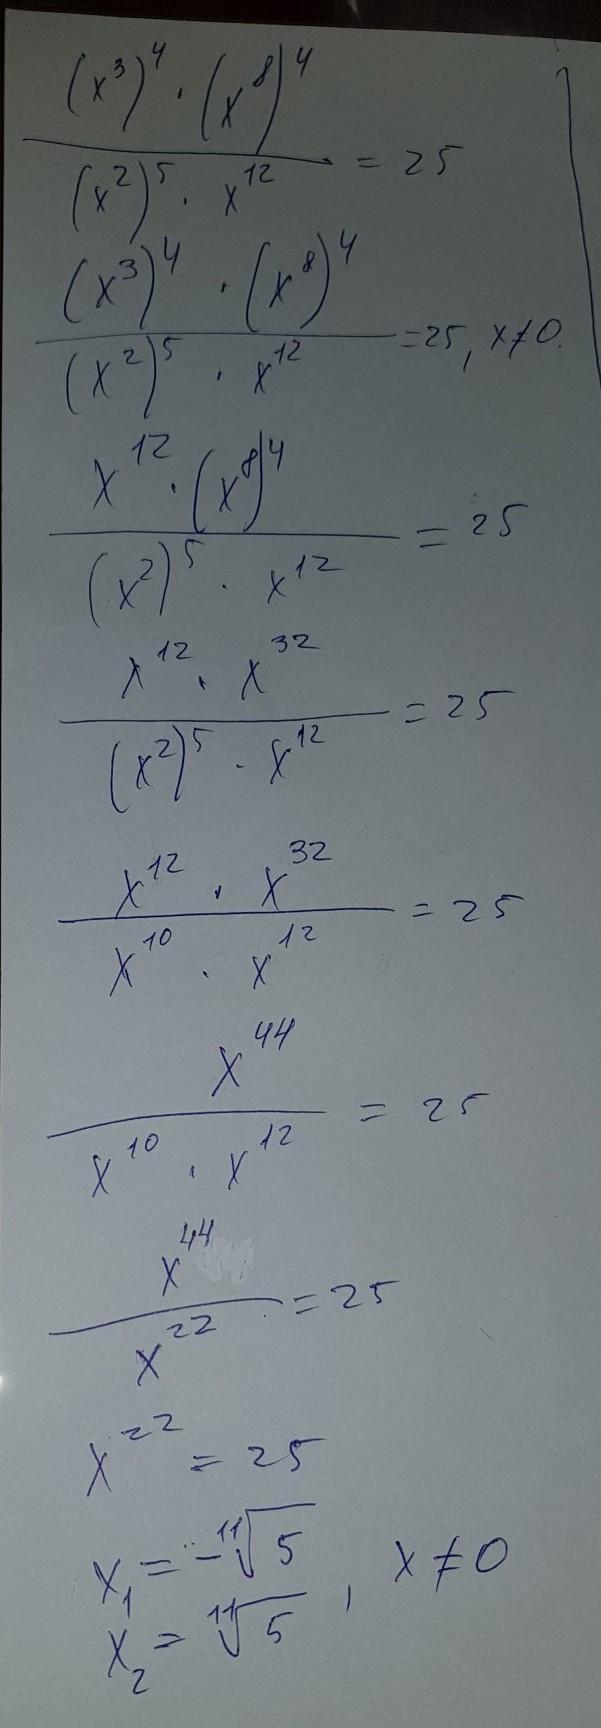 (x³)⁴ · (x⁸)⁴
/ (x²)⁵ · x¹² = 25
(x³)⁴ · (x⁸)⁴
/ (x²)⁵ · x¹² = 25, x≠0.
x¹² · (x⁸)⁴
/ (x²)⁵ · x¹² = 25
x¹² · x³²
/ (x²)⁵ · x¹² = 25
x¹² · x³²
/ x¹⁰ · x¹² = 25
x⁴⁴
/ x¹⁰ · x¹² = 25
x⁴⁴
/ x²² = 25
x²² = 25
x₁ = -¹¹√5
x₂ = ¹¹√5 , x≠0